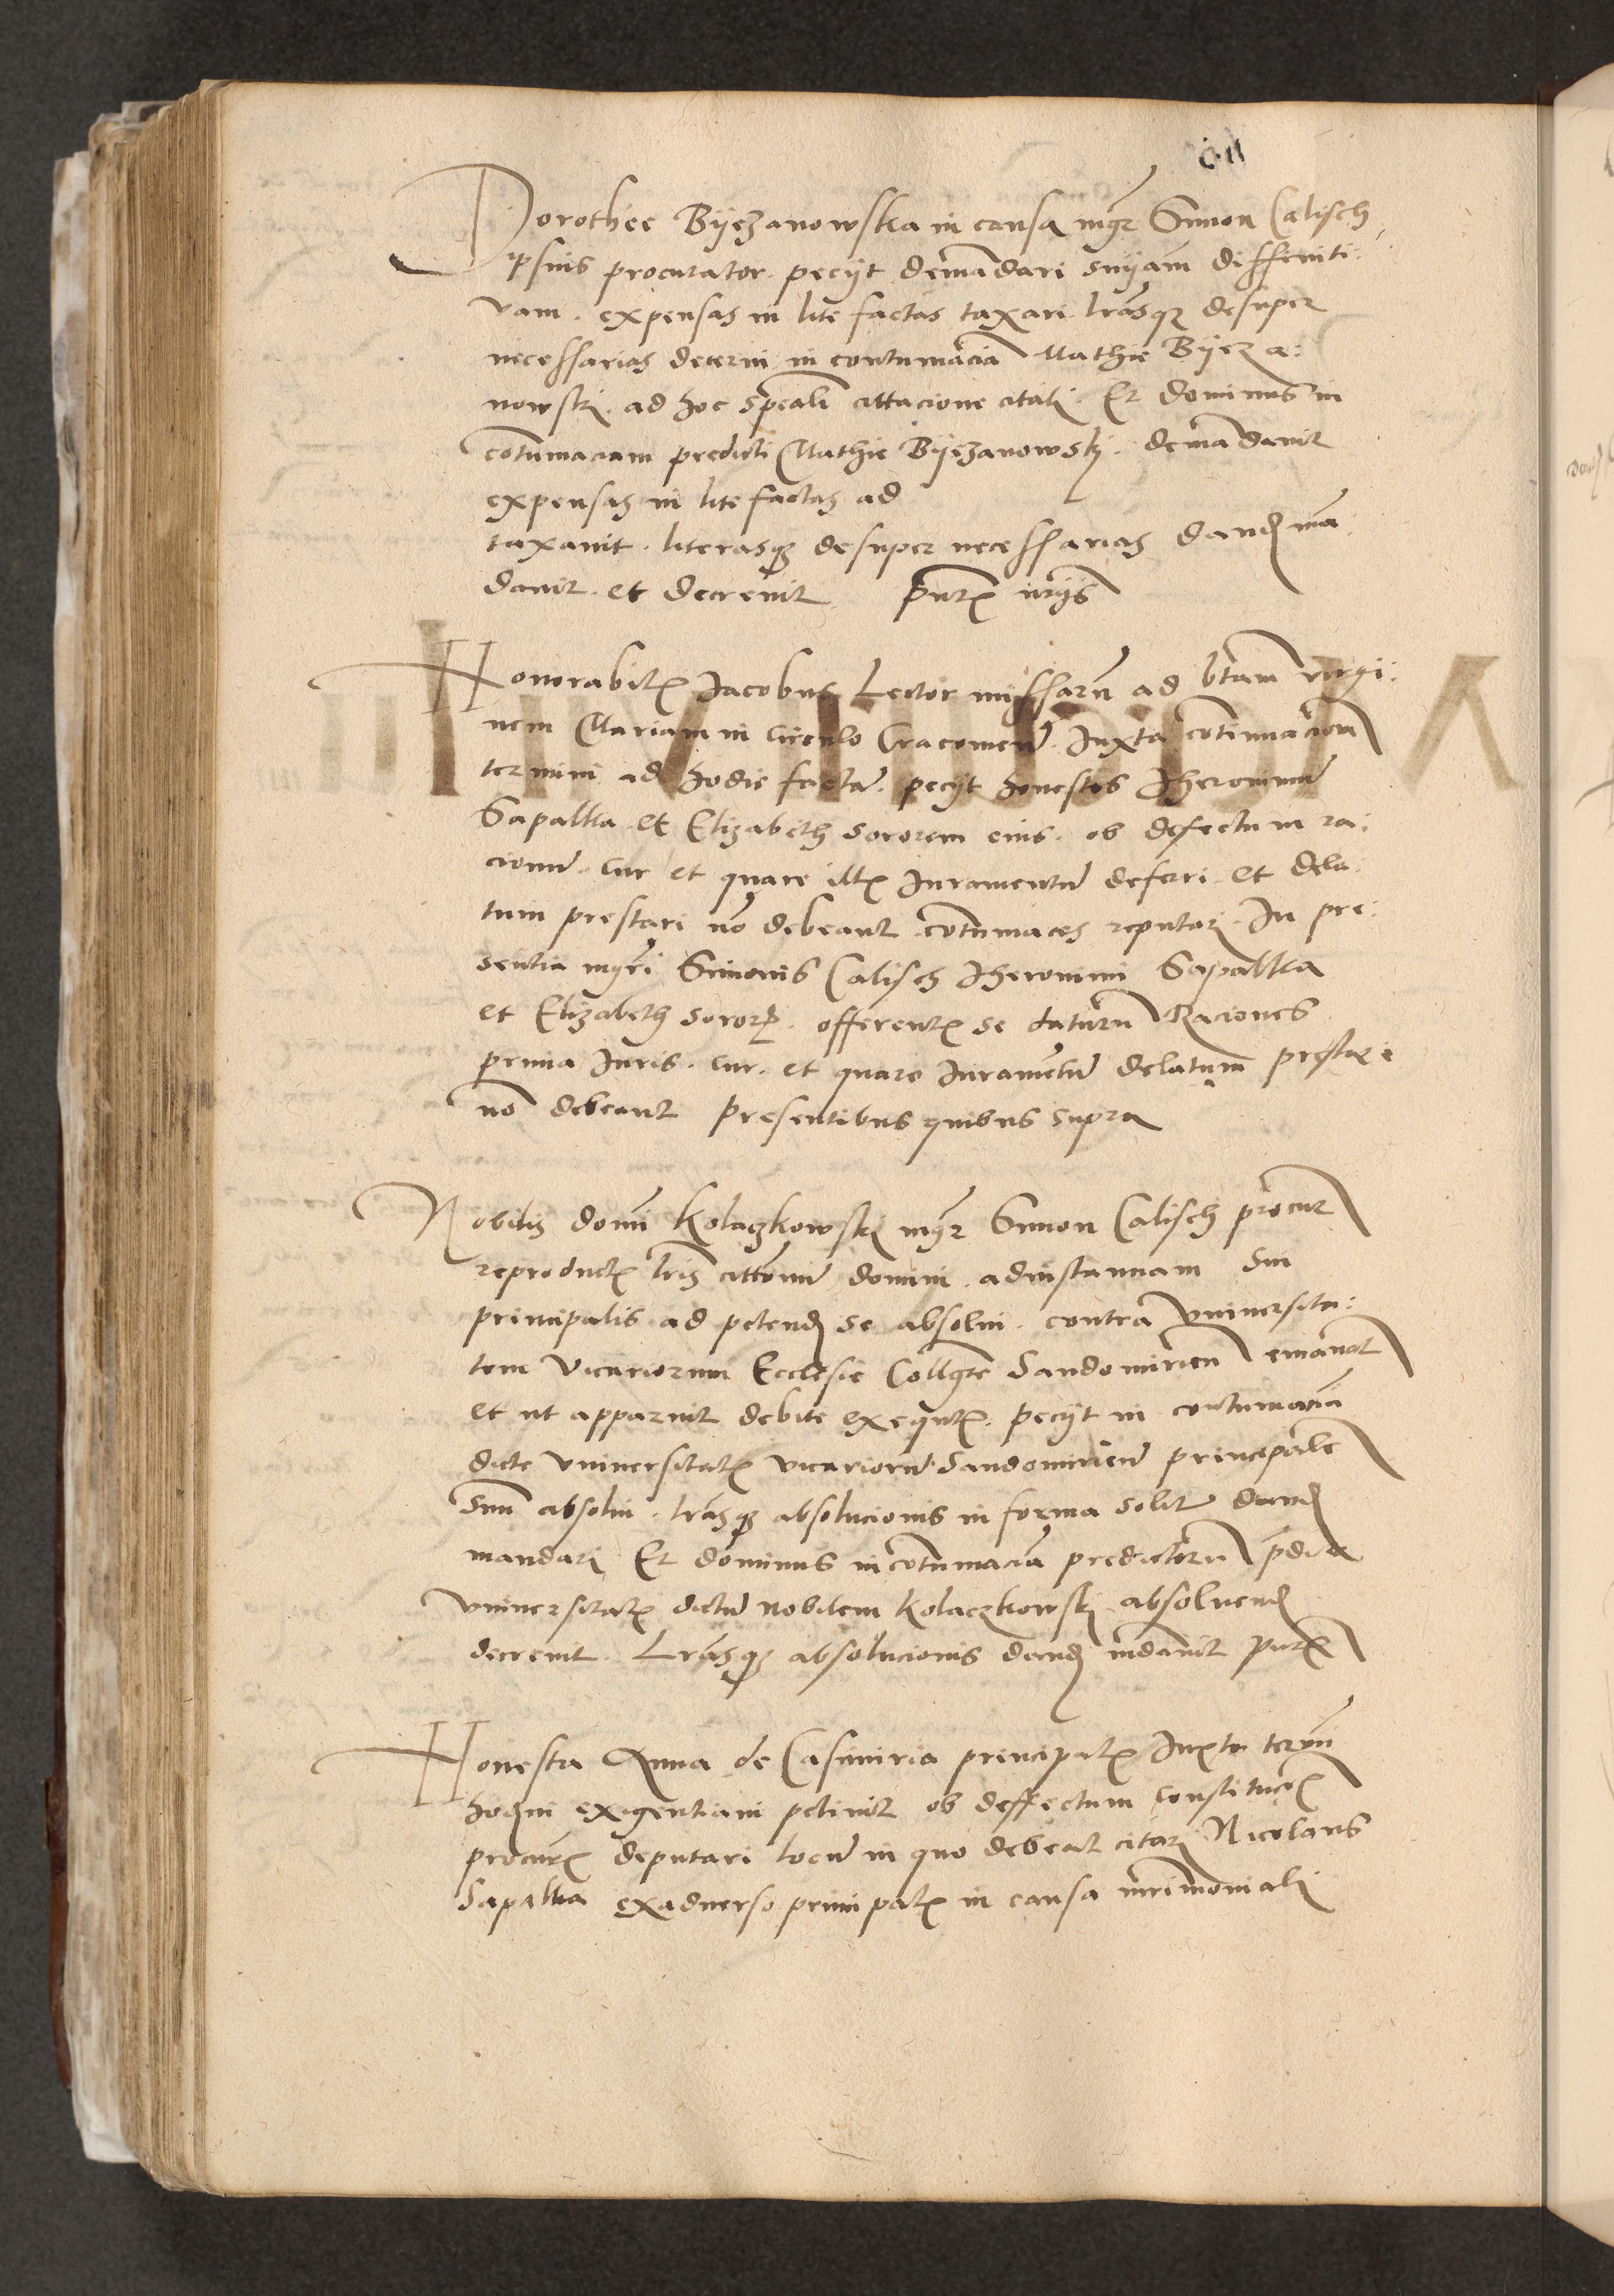 Dorothee Byezanowska in causa mgr Simon Calisch
ipsius procurator pecyt demandari snyam diffeniti:
vam. expensas in lite factas taxari lrasque desuper
necessarias decerni in contumacia Mathie Byeza:
nowski. ad hoc speciali cittacione citati. Et dominus in
cotumaciam predicti Mathie Byezanowski. demadavit
expensas in lite factas ad
taxavit. literasque desuper necessarias dand ma
davit. et decrevit
Honorabilis Jacobus Lector missaru ad btam virgi:
nem Mariam in circulo Cracovien. Juxta cotinuacionem
termini ad hodie facta. pecyt honestos Jheronimu
Sapalka et Elizabeth sororem eius. ob defectum ra:
cionu. cur et quare illis Juramentu deferri et dela
tum prestari no debeant. cotumaces reputari. In pre:
sentia mgri Simonis Calisch Jheronimi Sapalka
et Elizabeth soror. offerentis se daturu Raciones
prima Juris. cur. et quare Jurametu delatum prestari
no debeant presentibus quibus supra
Nobilis domi Kolaczkowski mgr Simon Calisch procur
reproductis lris cittoniu domini. ad instanciam sui
principalis ad petend se absolvi. contra universita:
tem vicariorum Ecclesie Collgte Sandomirien emanat
et ut apparuit debite exequtis. pecyt in contumacia
dicte universitatis vicarioru Sandomirien principale
suu absolvi. lrasque absolucionis in forma solit dand
mandari Et dominus in cotumacia predictoru
universitatis dictu nobilem Kolaczkowski absolvend
decrevit. Lrasque absolucionis dand mdavit
Honesta Anna de Casimiria principalis Juxta termi
hodierni exigentiam petivit ob deffectum constitucois
procuris deputari locu in quo debeat citari Nicolaus
Sapalka exadverso principalis in causa mrimoniali